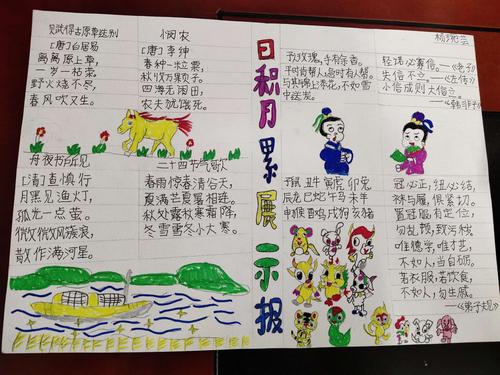 赋得古原草送别
[唐]白居易
离离原上草,
一岁一枯荣。
野火烧不尽,
春风吹又生。
悯农
[唐]李绅
春种一粒粟,
秋收万颗子。
四海无闲田,
农夫犹饿死。
舟夜书所见
[清]查慎行
月黑见渔灯,
孤光一点萤。
微微风簇浪,
散作满河星。
二十四节气歌
春雨惊春清谷天,
夏满芒夏暑相连。
秋处露秋寒霜降,
冬雪雪冬小大寒。
日积月累展示报
予玫瑰,手有余香。
平时肯帮人,急时有人帮。
与其锦上添花,不如雪
中送炭。
轻诺必寡信。——《老子》
失信不立。——《左传》
小信成则大信立。
——《韩非子》
子鼠 丑牛 寅虎 卯兔
辰龙巳蛇午马未羊
申猴酉鸡戌狗亥猪
冠必正,纽必结,
袜与履,俱紧切。
置冠服,有定位,
勿乱顿,致污秽
唯德学,唯才艺,
不如人,当自砺。
若衣服,若饮食,
不如人,勿生戚。
——《弟子规》